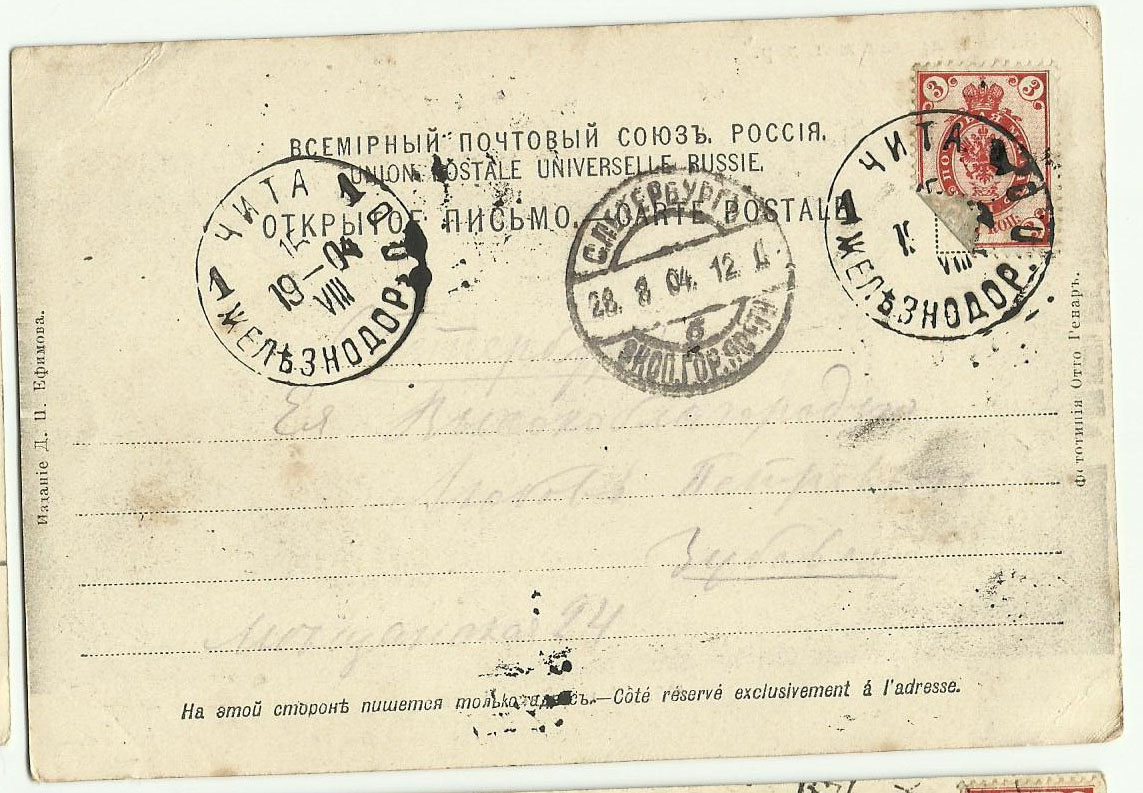 ВСЕМІРНЫЙ ПОЧТОВЫЙ СОЮЗЪ. РОССІЯ.
UNION POSTALE UNIVERSELLE RUSSIE.
ОТКРЫТОЕ ПИСЬМО. CARTE POSTALE
3 3
ЧИТА
1 1
19 04
VIII
ЖЕЛѢЗНОДОР. П.О.
С.ПЕТЕРБУРГЪ
28. 8 04. 12
6
ЭКСП.ГОР.ПОЧТЫ
ЧИТА
1
VIII
ЖЕЛѢЗНОДОР. П О
Изданіе Д. П. Ефимова.
Фототипія Отто Генаръ.
Ея Высокоблагородію
24
На этой сторонѣ пишется только адресъ.—Côté réservé exclusivement á l'adresse.